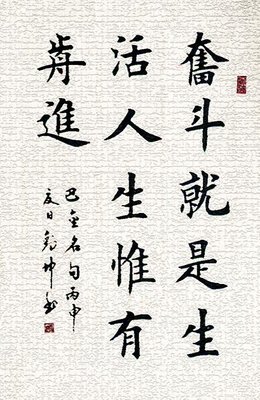 奮斗就是生
活人生惟有
歬進
巴金名句丙申
夏日劉坤書